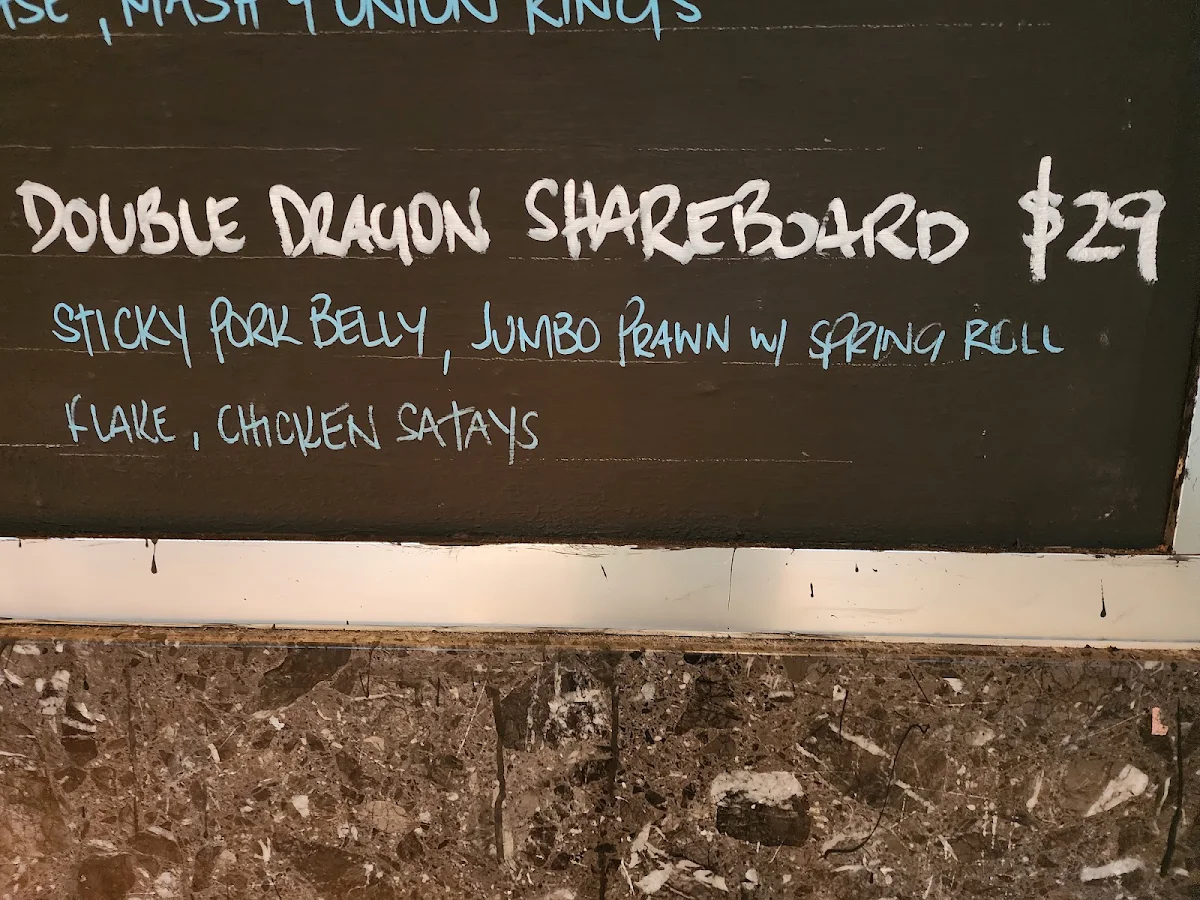 , MASH & ONION RINGS
DOUBLE DRAGON SHAREBOARD $29
STICKY PORK BELLY, JUMBO PRAWN W/ SPRING ROLL
FLAKE, CHICKEN SATAYS